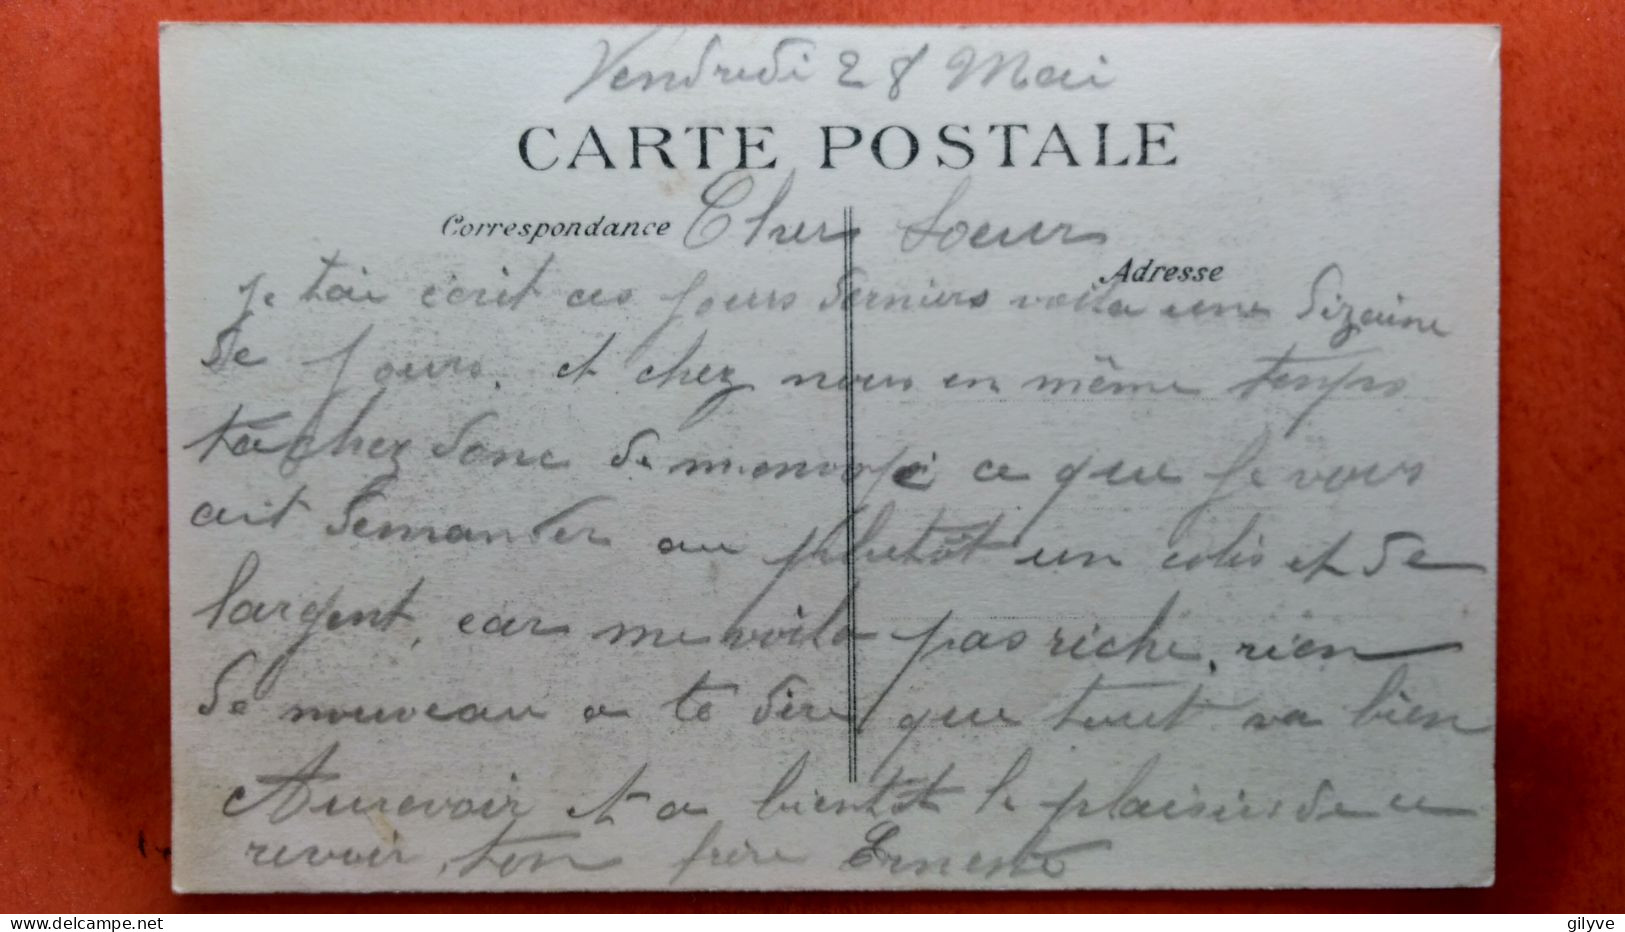 Vendredi 28 Mai
CARTE POSTALE
Correspondance
Cher Soeur
Adresse
je tai écrit ces jours derniers voila une dizaine
de jours. et chez nous en même temps
tachez donc de menvoyé ce que je vous
ait demander au plutôt un colis et de
largent, car me voila pas riche, rien
de nouveau a te dire que tout va bien
Aurevoir et a bientôt le plaisirs de ce
revoir, ton frère Ernest
www.delcampe.net
gilyve